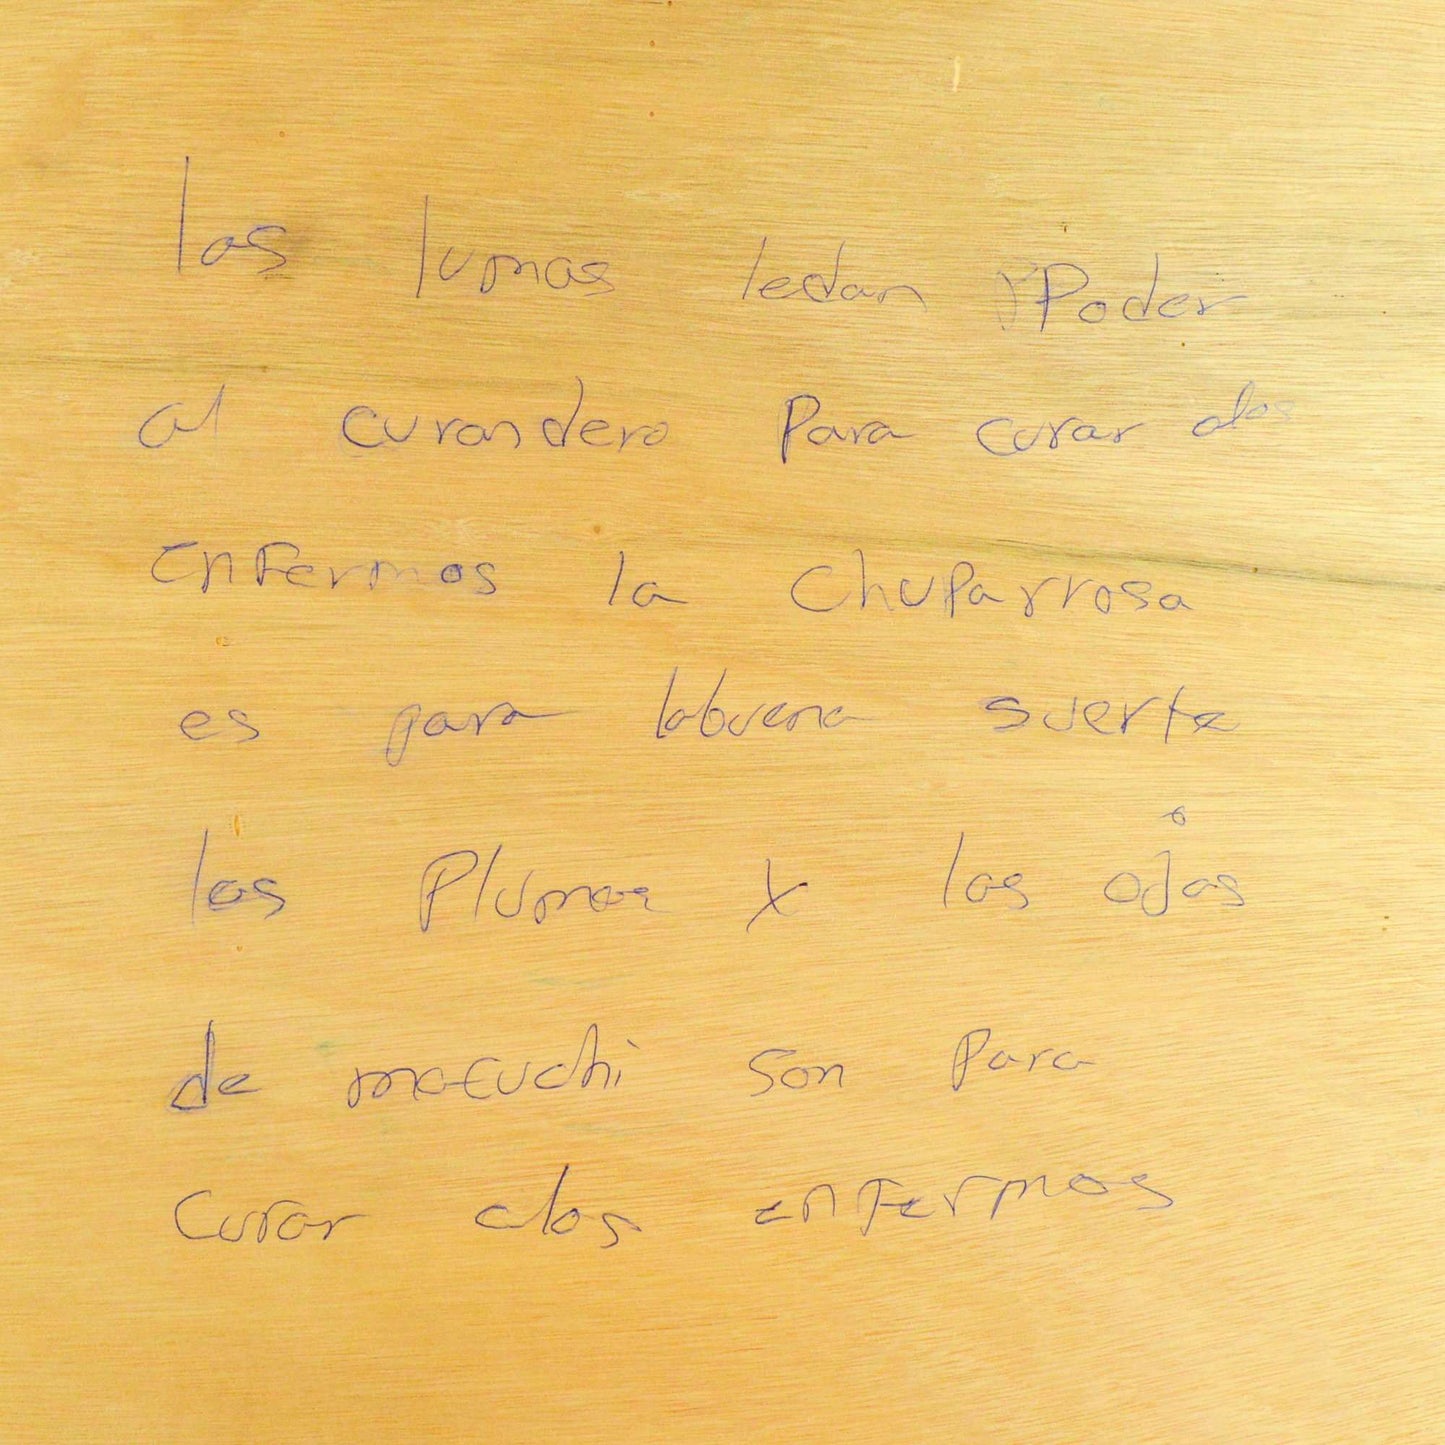 las lumas ledan Poder
al curandero Para curar alos
enfermos la Chuparrosa
es para labuena suerte
las Plumas y los ojos
de macuchi son Para
Curar alos enfermos